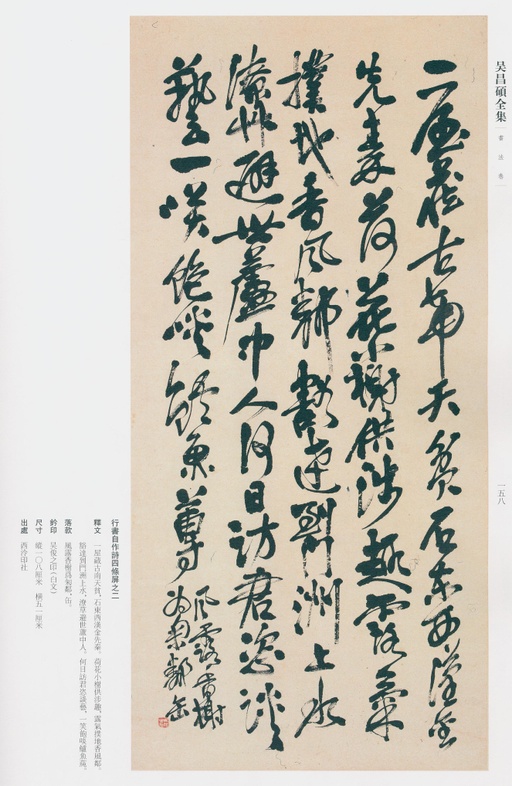 吴昌碩全集
書法卷
一五八
一屋藏古甫天貧石東西漢金
先秦荷花小榭供涉趣露氣
撲地香風鄰豁達劉門洲上水
潦草避世蘆中人何日訪君恣談
藝一笑飽啖鱸魚蓴
風露香榭
為蘭鄰缶
行書自作詩四條屏之二
釋文 一屋藏古甫天貧,石東西漢金先秦。荷花小榭供涉趣,露氣撲地香風鄰。
豁達劉門洲上水,潦草避世蘆中人。何日訪君恣談藝,一笑飽啖鱸魚蓴。
落款 風露香榭為蘭鄰,缶。
鈐印 吴俊之印(白文)
尺寸 縱一〇八厘米 橫五一厘米
出處 西泠印社